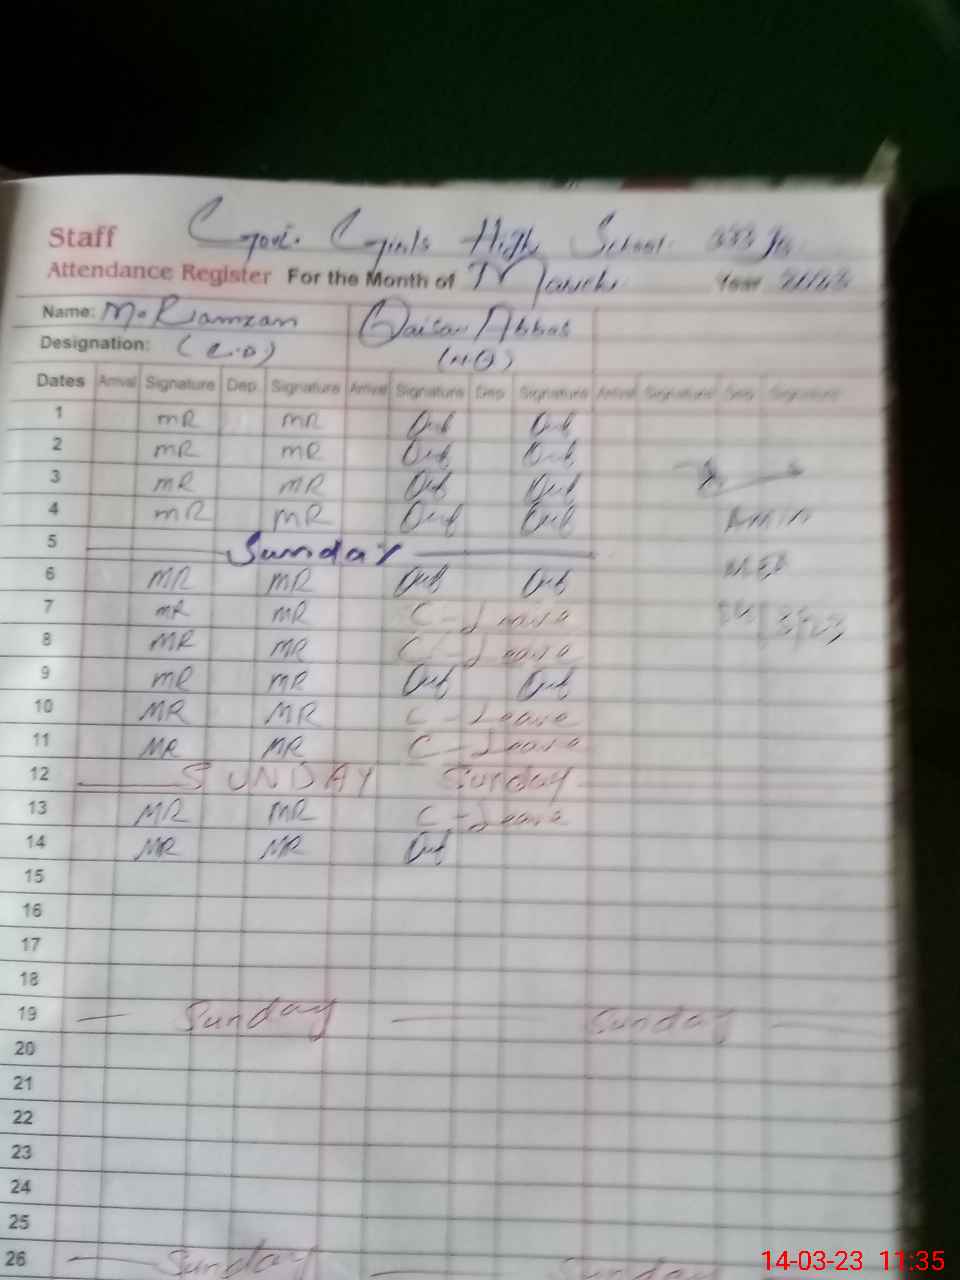 Staff Govt. Girls High School 333 JB
Attendance Register For the Month of March Year 2023
Name: M. Ramzan Qaisar Abbas
Designation:
Dates Arrival Signature Dep. Signature Arrival Signature Dep. Signature Arrival Signature Dep. Signature
1 MR MR
2 MR MR
3 MR MR
4 MR MR
5 Sunday
6 MR MR
7 MR MR C-Leave
8 MR MR C-Leave
9 MR MR
10 MR MR C-Leave
11 MR MR C-Leave
12 SUNDAY Sunday
13 MR MR C-Leave
14 MR MR
15
16
17
18
19 Sunday Sunday
20
21
22
23
24
25
26 Sunday Sunday
14-03-23 11:35